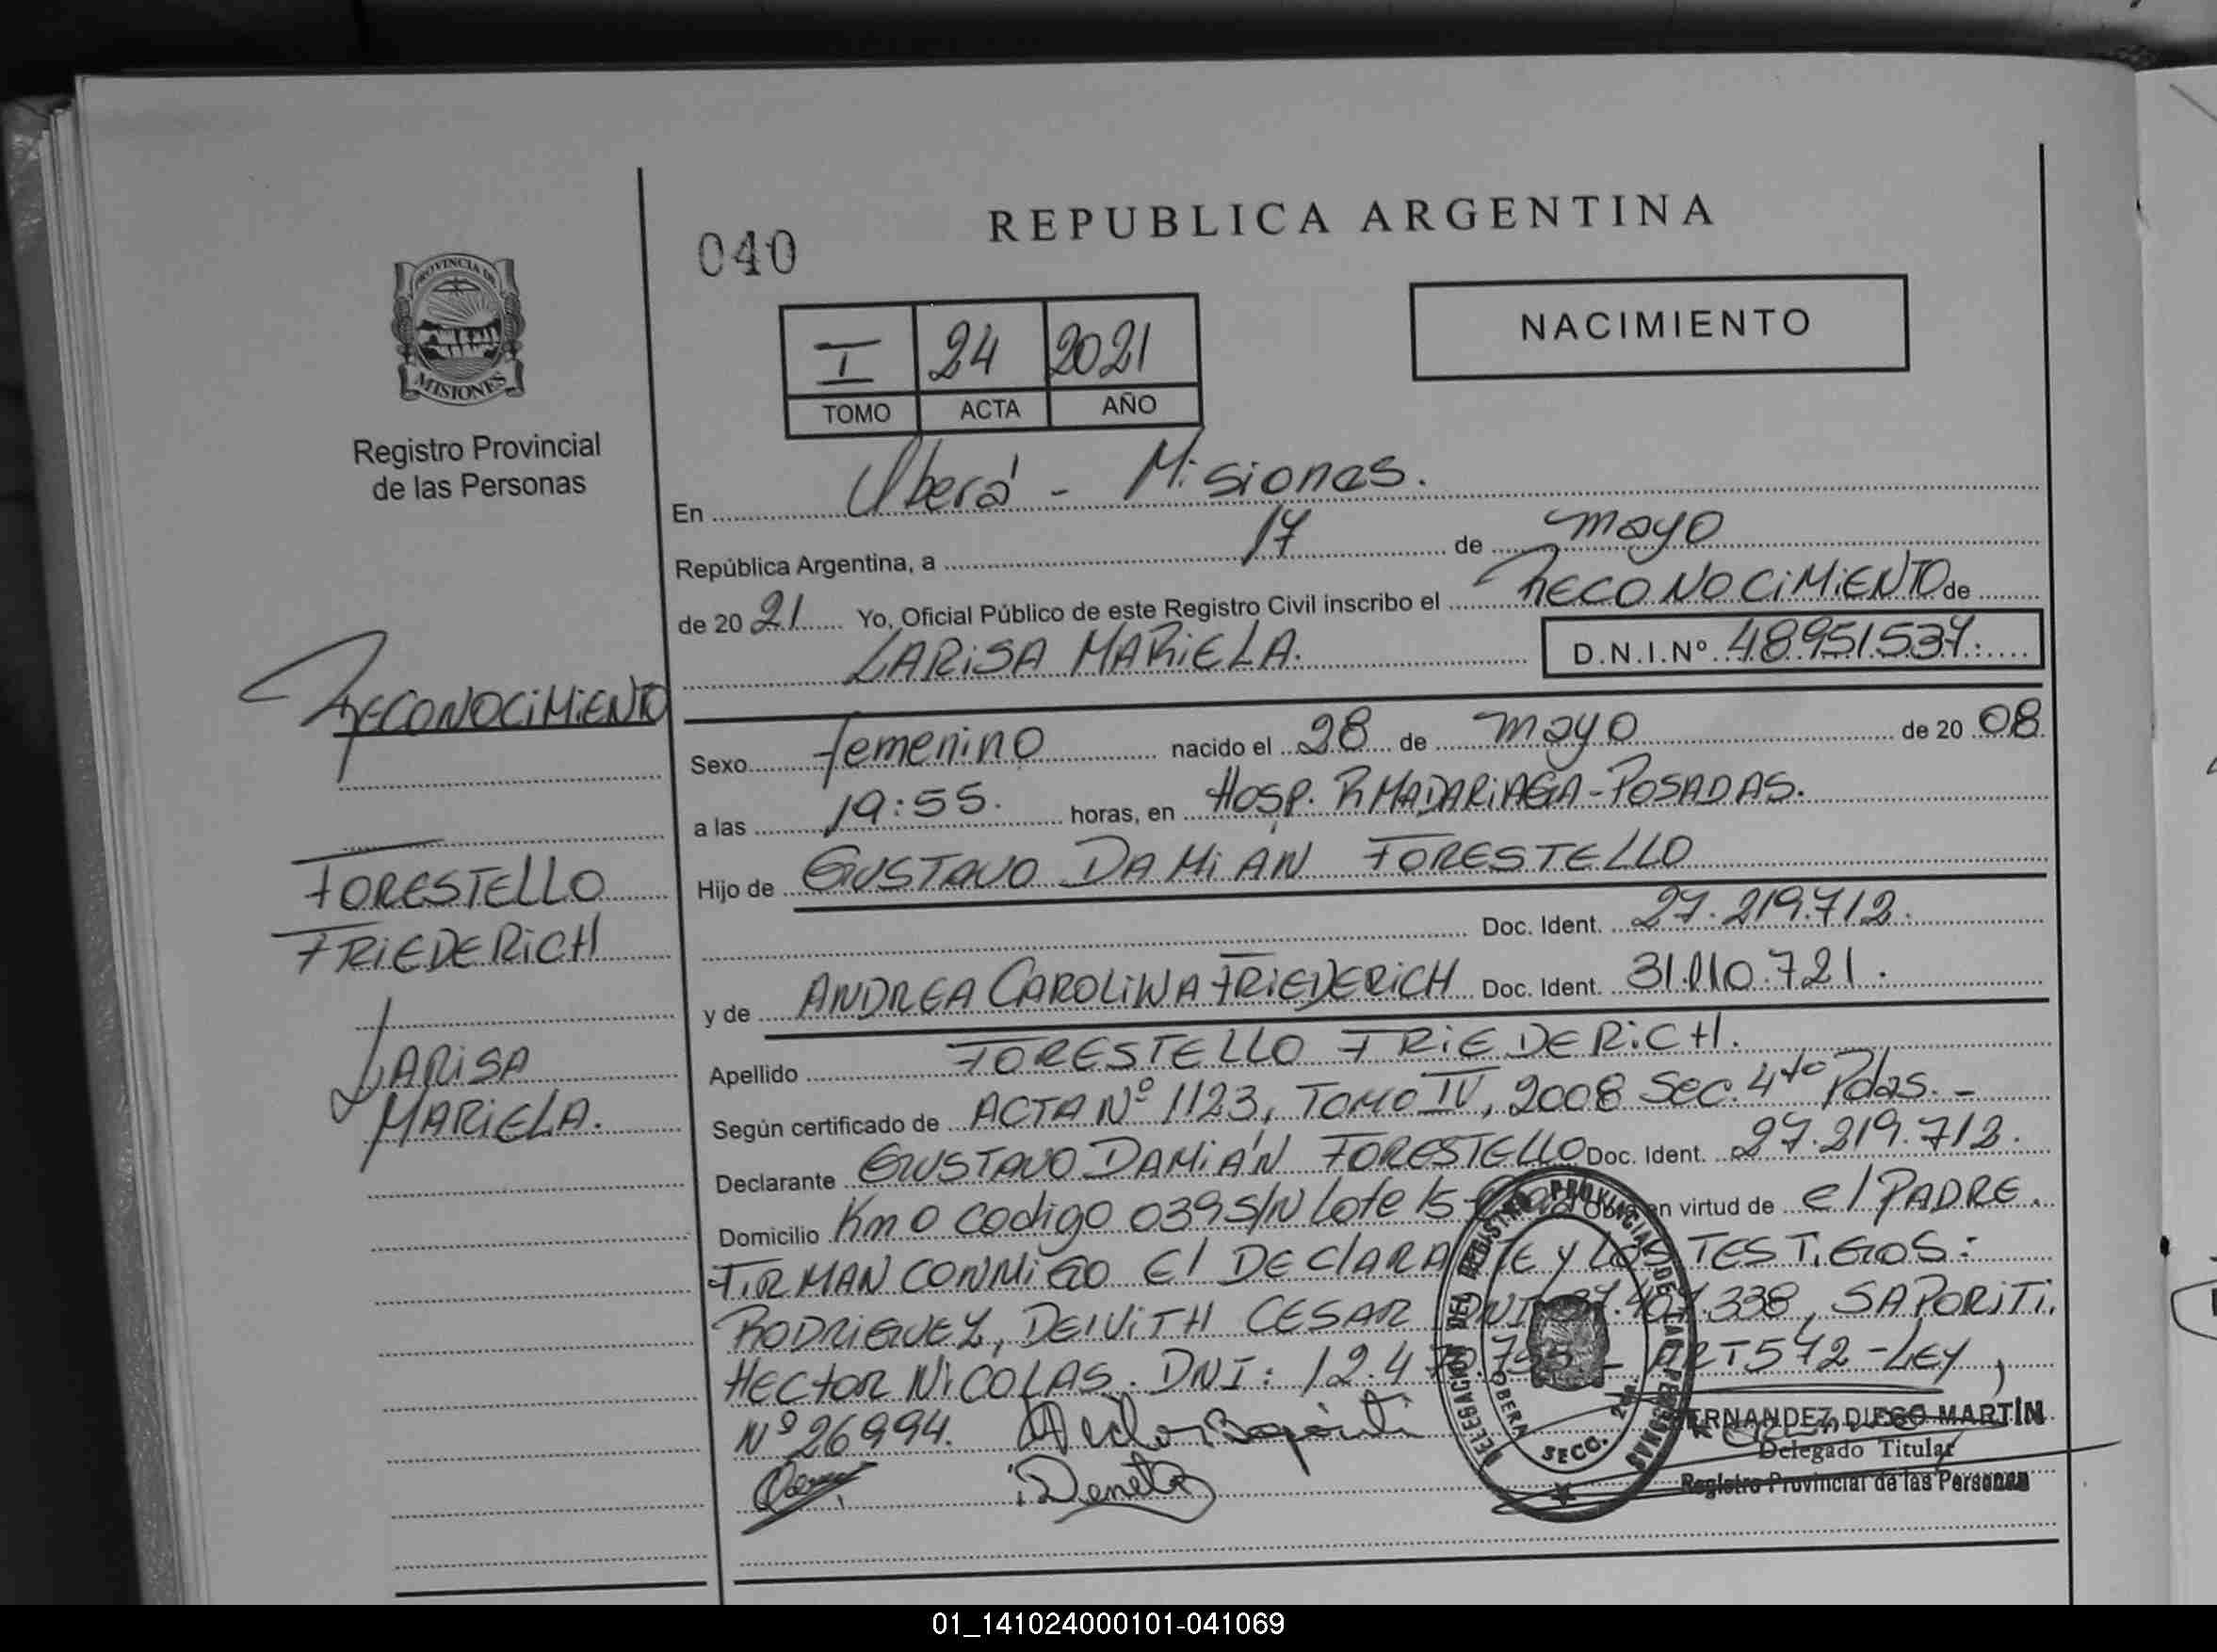 040
REPUBLICA ARGENTINA
PROVINCIA DE
MISIONES
I 24 2021
TOMO ACTA AÑO
NACIMIENTO
Registro Provincial
de las Personas
En Oberá - Misiones.
República Argentina, a 17 de mayo
de 2021 Yo, Oficial Público de este Registro Civil inscribo el RECONOCIMIENTO de
LARISA MARIELA. D.N.I.Nº 48951.537.
RECONOCIMIENTO
Sexo femenino nacido el 28 de mayo de 20 08
a las 19:55. horas, en HOSP. R. MADARIAGA - POSADAS.
FORESTELLO
FRIEDERICH
Hijo de GUSTAVO DAMIAN FORESTELLO
Doc. Ident. 27.219.712.
y de ANDREA CAROLINA FRIEDERICH Doc. Ident. 31.110.721.
LARISA
MARIELA.
Apellido FORESTELLO FRIEDERICH.
Según certificado de ACTA Nº 1123, TOMO IV, 2008 Sec. 4to Pdas. -
Declarante GUSTAVO DAMIÁN FORESTELLO Doc. Ident. 27.219.712.
Domicilio Km 0 codigo 0395/N Lote 15 en virtud de el PADRE.
FIRMAN CONMIGO El DEClARANTE y LOS TESTIGOS:
RODRIGUEZ, DEIVITH CESAR DNI .338, SAPORITI,
HECTOR NICOLAS. DNI: 12.4 - ART 572 - LEY
Nº 26994.
DELEGACION DEL REGISTRO PROVINCIAL DE LAS PERSONAS
OBERA SECC. 2da.
FERNANDEZ, DIEGO MARTÍN
Delegado Titular
Registro Provincial de las Personas
01_141024000101-041069